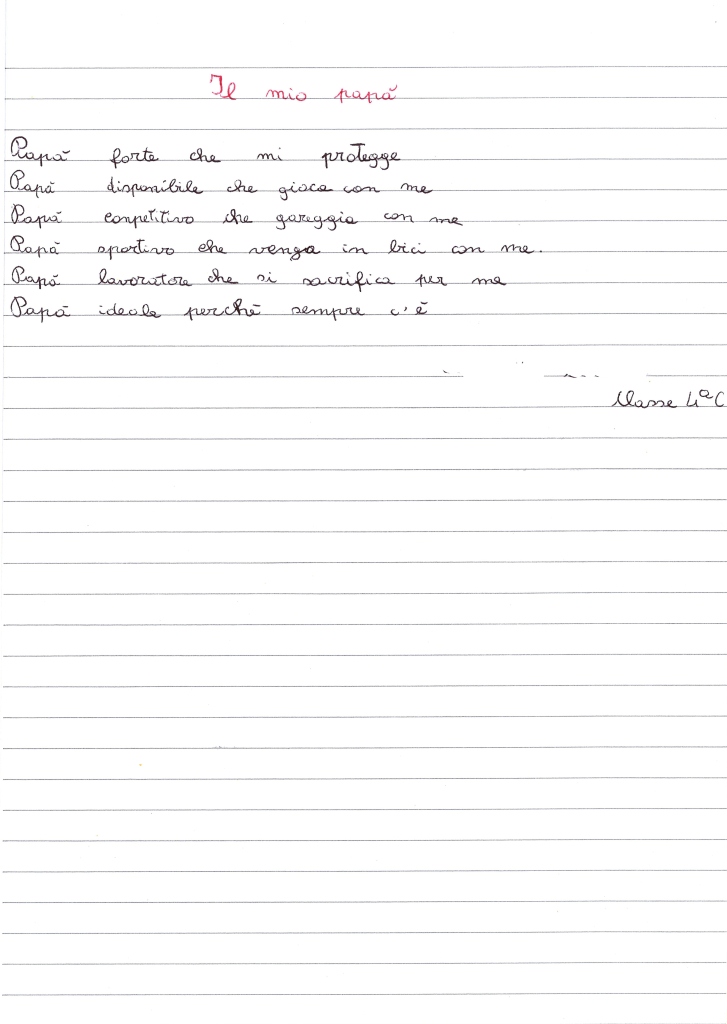 Il mio papà
Papà forte che mi protegge
Papà disponibile che gioca con me
Papà conpetitivo che gareggia con me
Papà sportivo che venga in bici con me.
Papà lavoratore che si sacrifica per me
Papà ideale perchè sempre c'è
Classe 4ª C